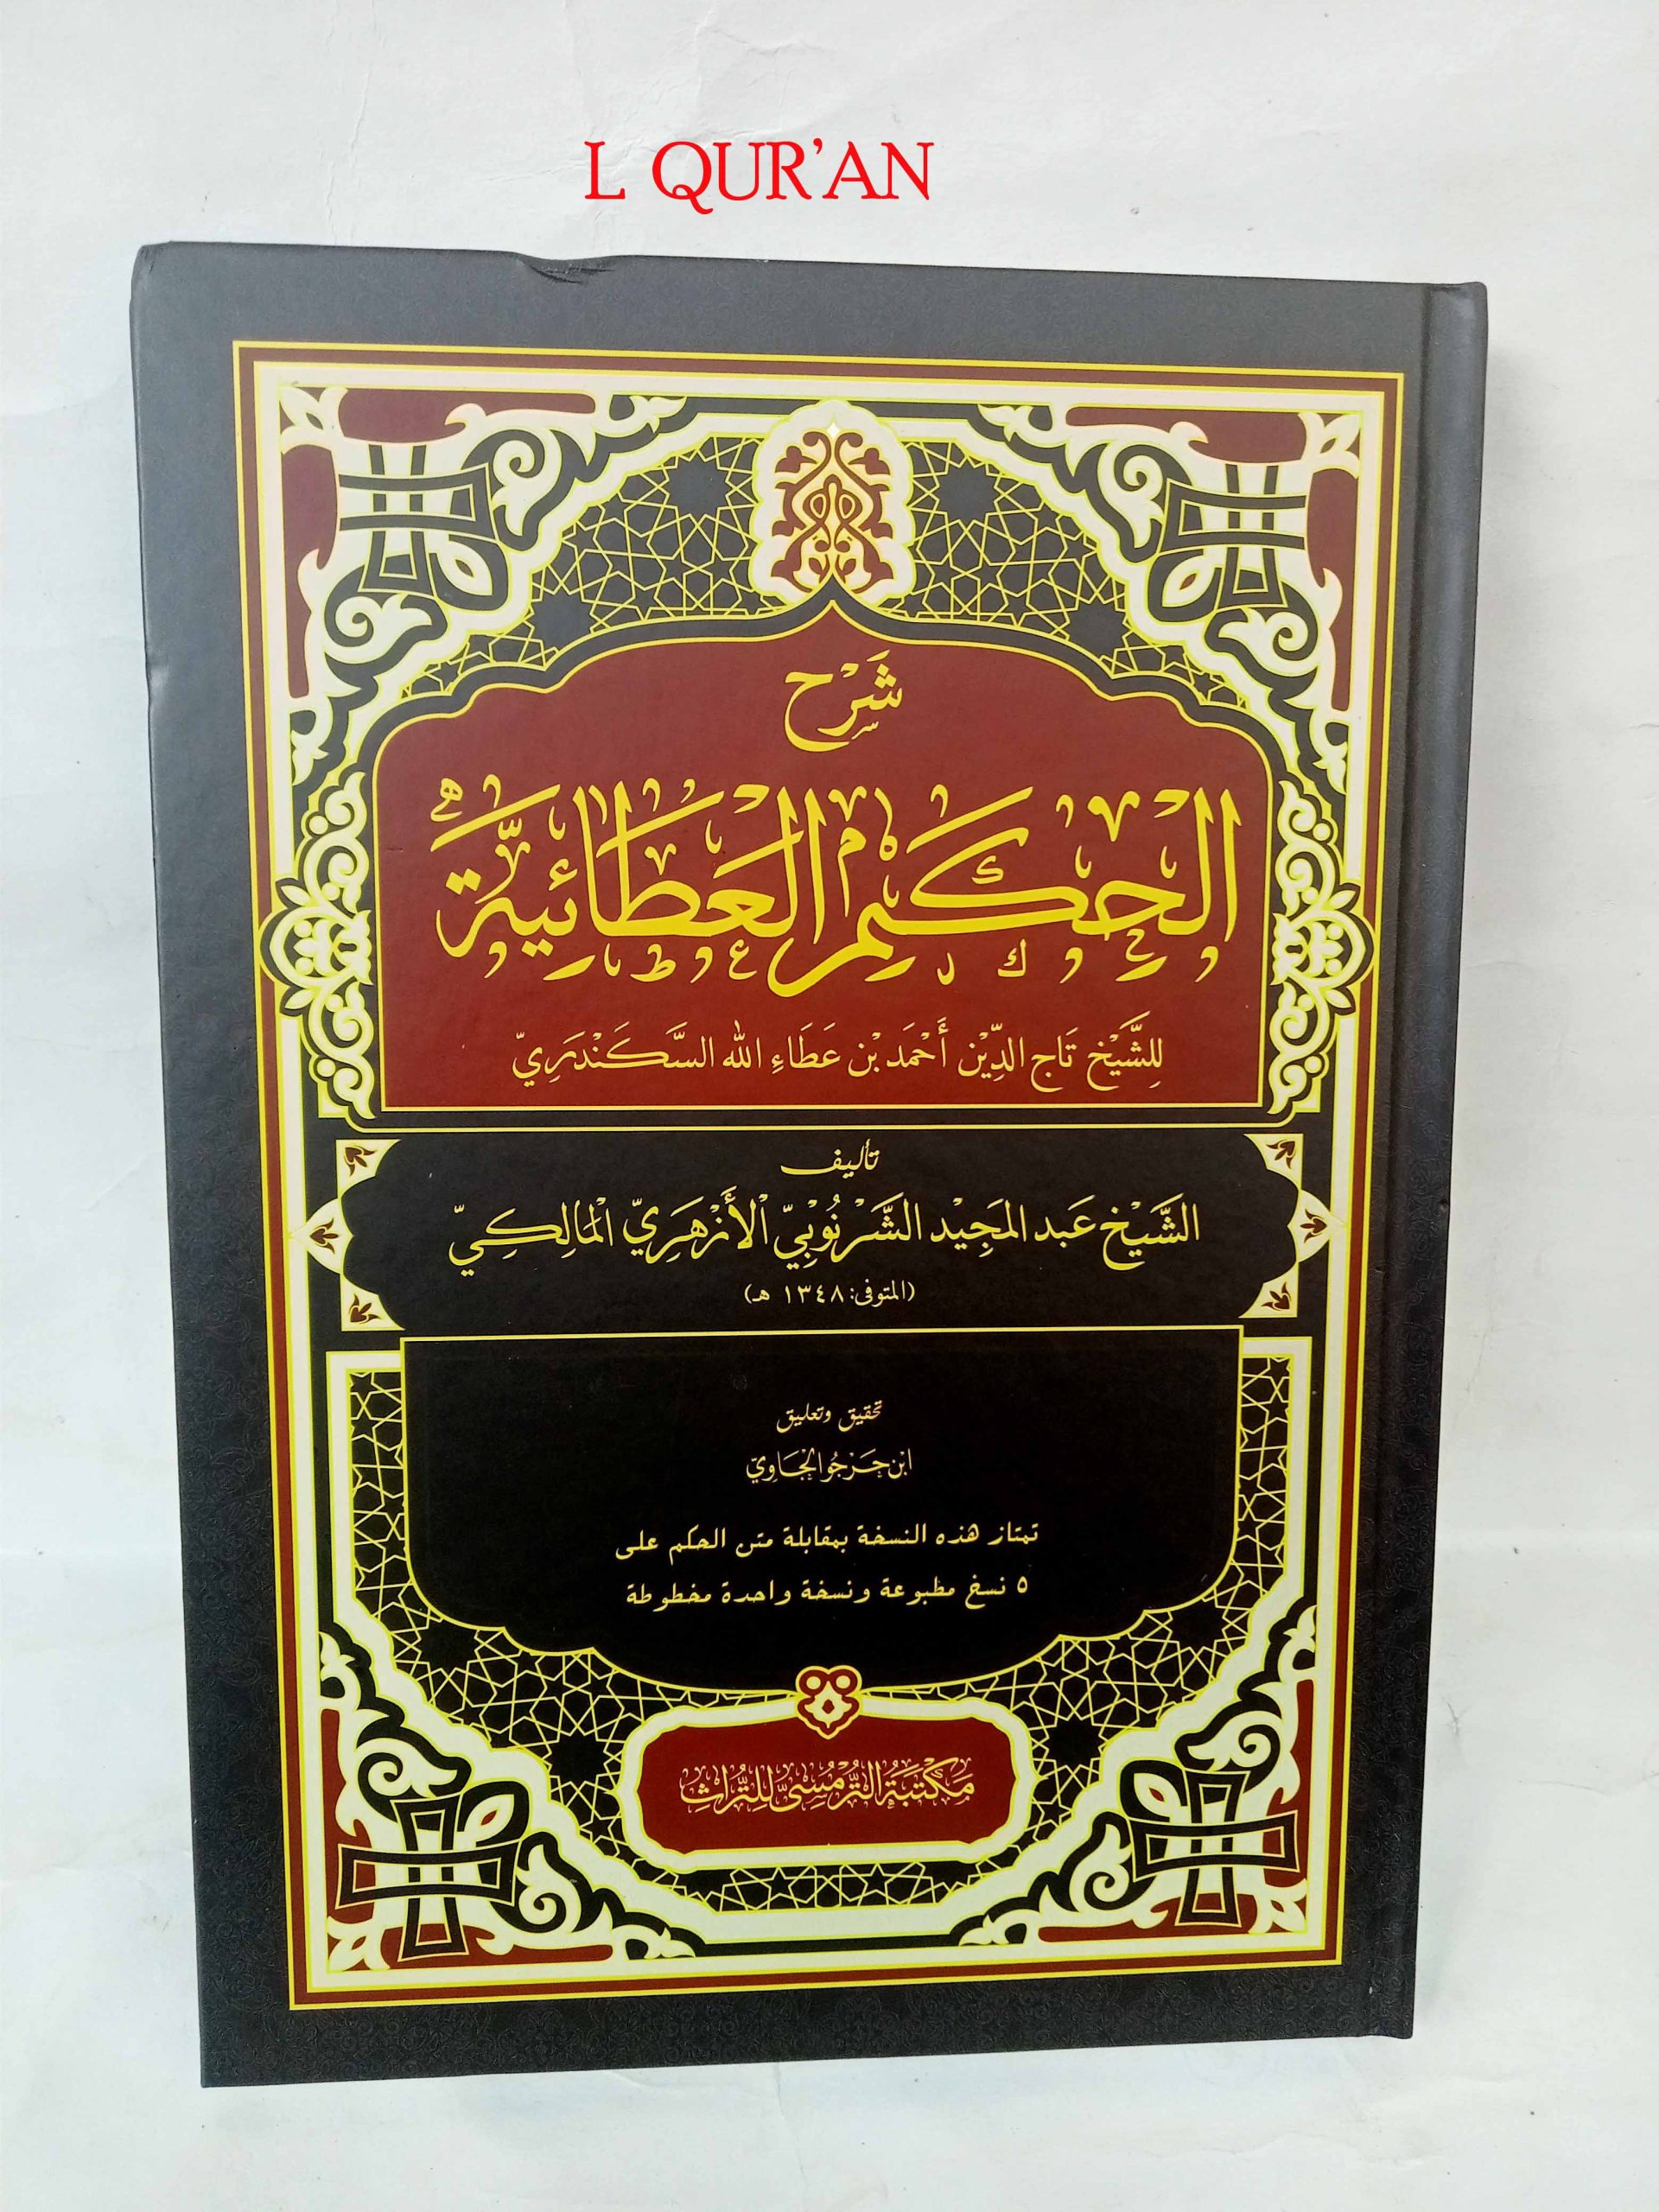 L QUR'AN
شَرْح
الْحِكَمِ الْعَطَائِيَّةِ
لِلشَّيْخ تَاج الدِّيْن أَحْمَد بْن عَطَاءِ الله السَّكَنْدَرِيّ
تأليف
الشَّيْخ عَبد المَجِيْد الشَّرْنُوْبِيّ الْأَزْهَرِيّ الْمَالِكِيّ
(المتوفى: ١٣٤٨ هـ)
تحقيق وتعليق
ابْن حَرْجُو الْجَاوِيّ
تمتاز هذه النسخة بمقابلة متن الحكم على
٥ نسخ مطبوعة ونسخة واحدة مخطوطة
مَكْتَبَةُ التُّرْمُسِيِّ لِلتُّرَاثِ